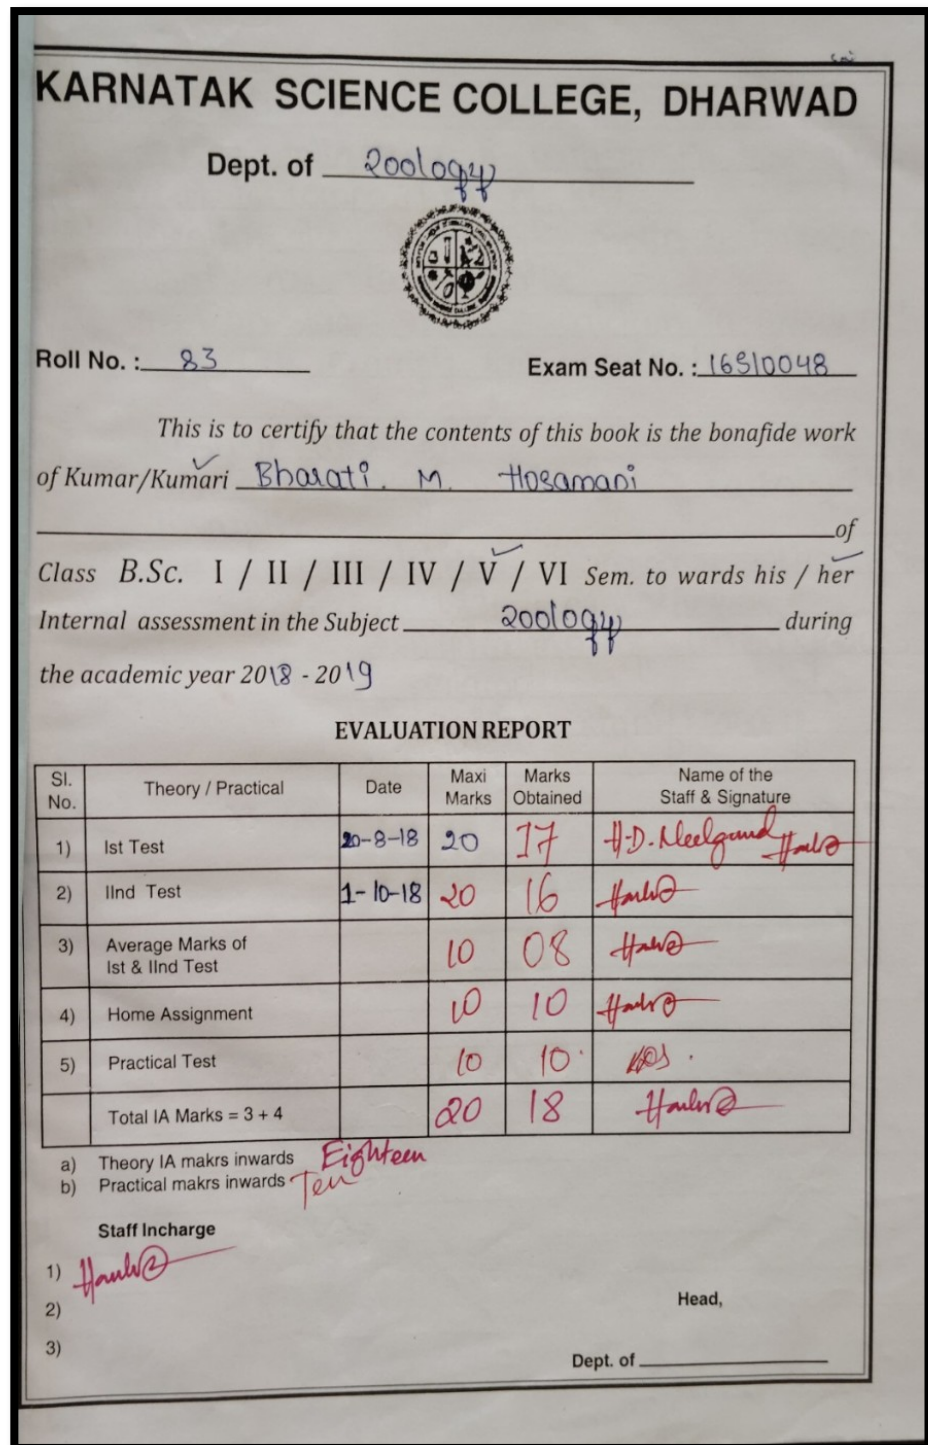 KARNATAK SCIENCE COLLEGE, DHARWAD
Dept. of Zoology
Roll No. : 83 Exam Seat No. : 16S10048
This is to certify that the contents of this book is the bonafide work
of Kumar/Kumari Bharati. M. Hosamani
of
Class B.Sc. I / II / III / IV / V / VI Sem. to wards his / her
Internal assessment in the Subject Zoology during
the academic year 2018 - 2019
EVALUATION REPORT
Sl. No. Theory / Practical Date Maxi Marks Marks Obtained Name of the Staff & Signature
1) Ist Test 20-8-18 20 17 H.D. Neelgund
2) IInd Test 1-10-18 20 16
3) Average Marks of Ist & IInd Test 10 08
4) Home Assignment 10 10
5) Practical Test 10 10
Total IA Marks = 3 + 4 20 18
a) Theory IA makrs inwards Eighteen
b) Practical makrs inwards Ten
Staff Incharge
1)
2)
Head,
3)
Dept. of